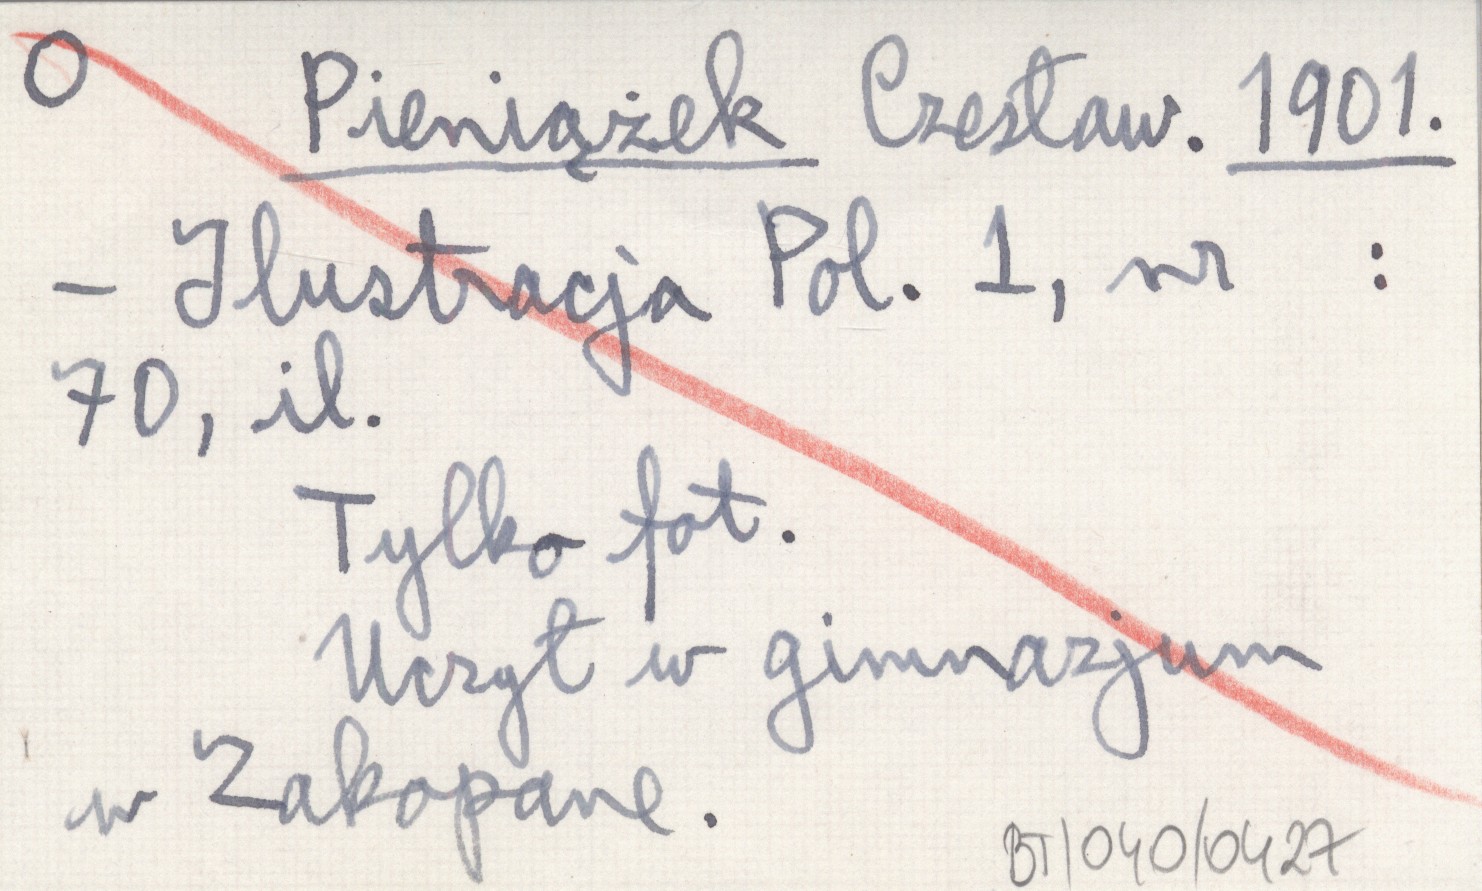 O Pieniążek Czesław. 1901.
– Ilustracja Pol. 1, nr :
70, il.
Tylko fot.
Uczył w gimnazjum
w Zakopane.
BT/040/0427